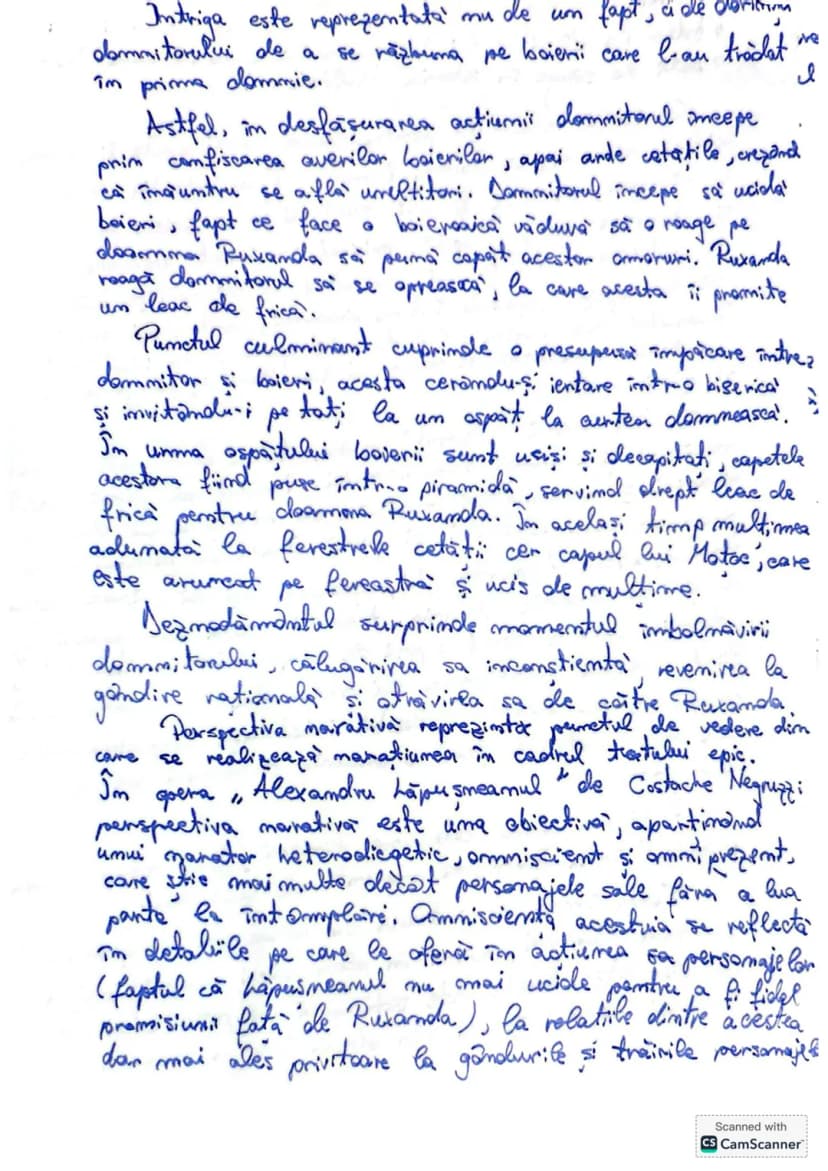 Intriga este reprezentată nu de un fapt, ci de dorința
domnitorului de a se răzbuna pe boierii care l-au trădat
în prima domnie.
Astfel, în desfășurarea acțiunii domnitorul începe
prin confiscarea averilor boierilor, apoi arde cetățile, crezând
că înăuntru se află uneltitori. Domnitorul începe să ucidă
boieri, fapt ce face o boieroaică văduvă să o roage pe
doamna Ruxanda să pună capăt acestor omoruri. Ruxanda
roagă domnitorul să se oprească, la care acesta îi promite
un leac de frică.
Punctul culminant cuprinde o presupusă împăcare între
domnitor și boieri, acesta cerându-și iertare într-o biserică
și invitându-i pe toți la un ospăț la curtea domnească.
În urma ospățului boierii sunt uciși și decapitați, capetele
acestora fiind puse într-o piramidă, servind drept leac de
frică pentru doamna Ruxanda. În același timp mulțimea
adunată la ferestrele cetății cer capul lui Moțoc, care
este aruncat pe fereastră și ucis de mulțime.
Deznodământul surprinde momentul îmbolnăvirii
domnitorului, călugărirea sa inconștientă, revenirea la
gândire rațională și otrăvirea sa de către Ruxanda.
Perspectiva narativă reprezintă punctul de vedere din
care se realizează narațiunea în cadrul textului epic.
În opera „Alexandru Lăpușneanul" de Costache Negruzzi
perspectiva narativă este una obiectivă, aparținând
unui narator heterodiegetic, omniscient și omniprezent,
care știe mai multe decât personajele sale fără a lua
parte la întâmplări. Omnisciența acestuia se reflectă
în detaliile pe care le oferă în acțiunea sa personajelor
(faptul că Lăpușneanul nu mai ucide pentru a fi fidel
promisiunii față de Ruxanda), la relațiile dintre acestea
dar mai ales privitoare la gândurile și trăirile personajel
Scanned with
CS CamScanner